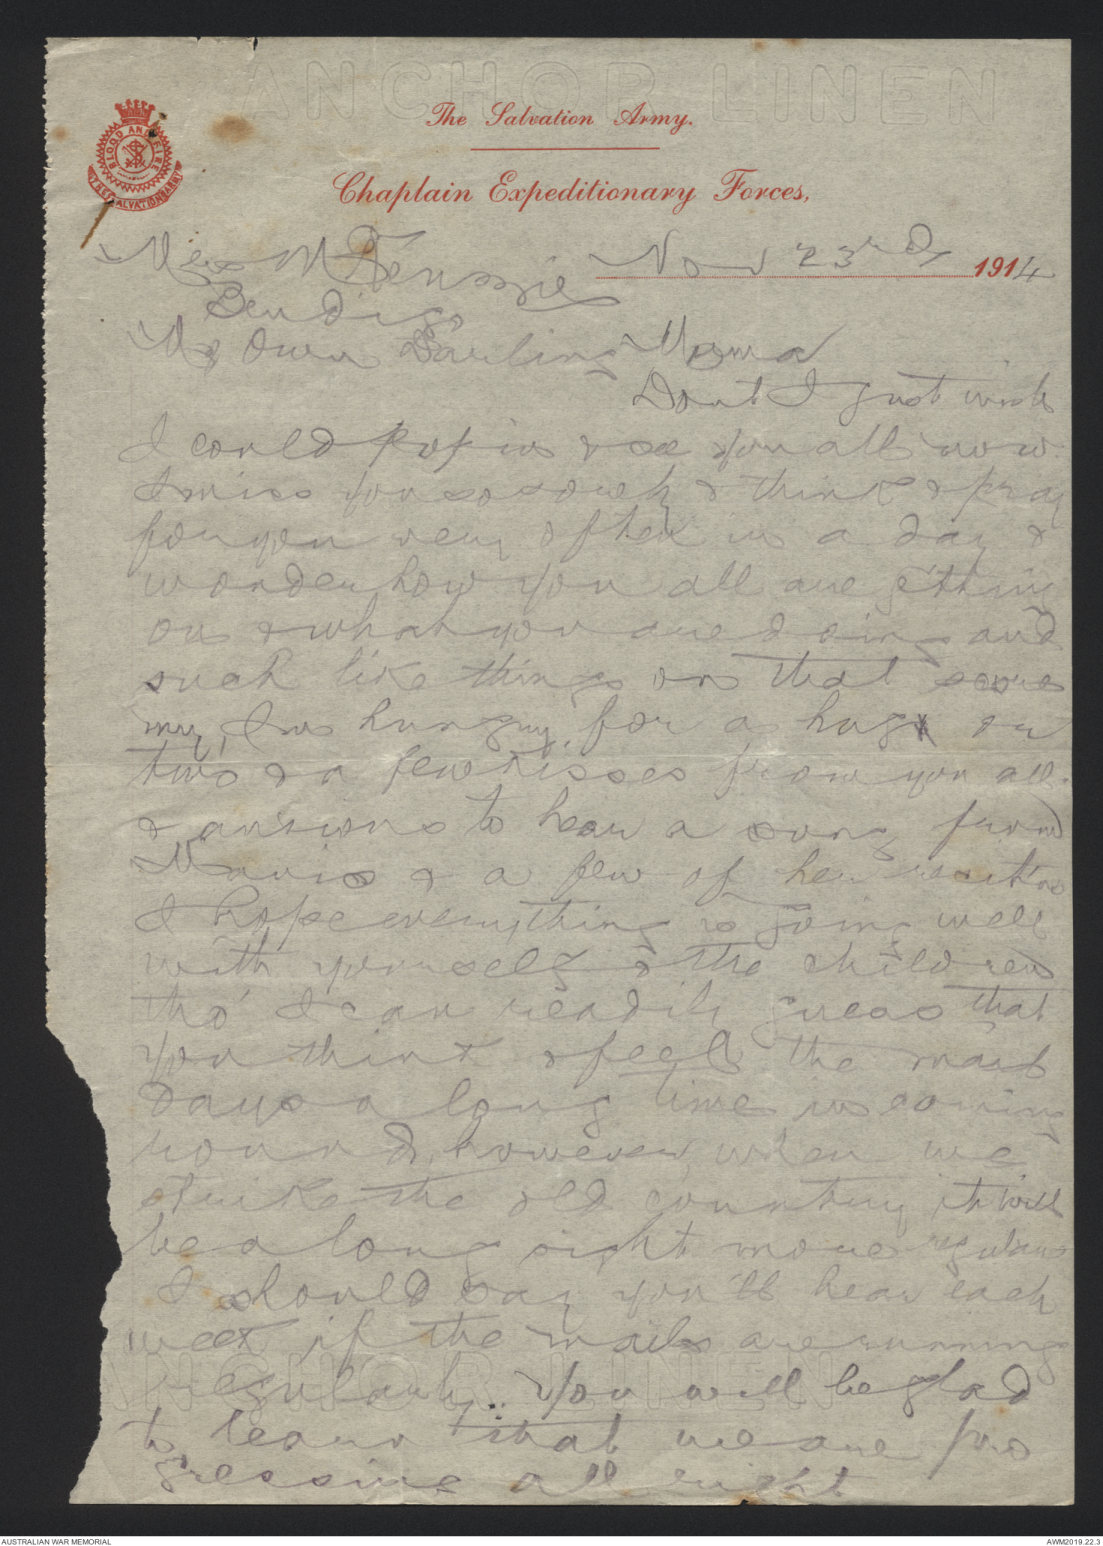 ANCHOR LINEN
The Salvation Army.
BLOOD AND FIRE
THE SALVATION ARMY
Chaplain Expeditionary Forces,
Nov 23rd 1914
Mrs McKenzie
Bendigo
My Own Darling Mama
Dont I just wish
I could pop in & see you all now.
I miss you so much & think & pray
for you very often in a day &
wonder how you all are getting
on & what you are doing and
such like things on that score
my, I'm hungry for a hug or
two & a few kisses from you all.
& anxious to hear a song from
Mavis & a few of her
I hope everything is going well
with yourself & the children
tho' I can readily guess that
you think & feel the mail
days a long time in coming
round, however, when we
strike the old country it will
be a long sight more regular
I should say you'll hear each
week if the mails are running
regularly. You will be glad
to learn that we are pro
gressing all right
ANCHOR LINEN
AUSTRALIAN WAR MEMORIAL
AWM2019.22.3